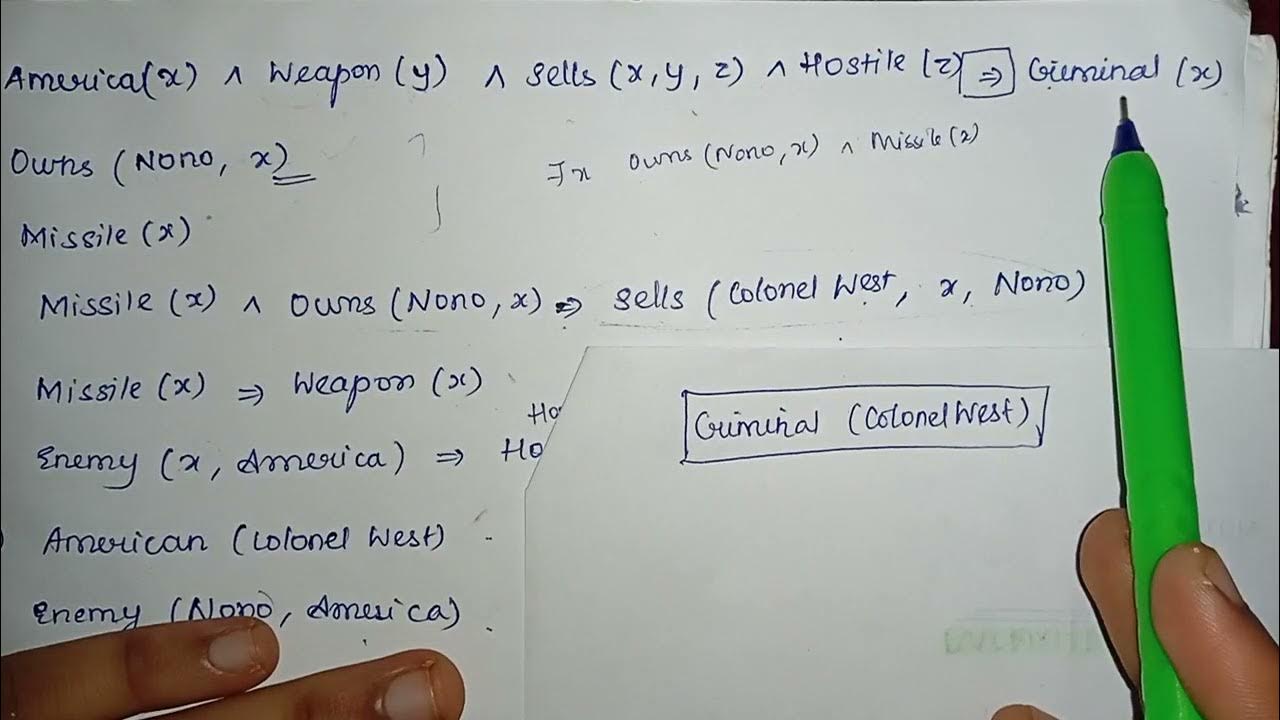 America(x) ∧ Weapon (y) ∧ Sells (x, y, z) ∧ Hostile (z) ⇒ Criminal (x)
Owns (Nono, x)
∃x Owns (Nono, x) ∧ Missile (x)
Missile (x)
Missile (x) ∧ Owns (Nono, x) ⇒ Sells (Colonel West, x, Nono)
Missile (x) ⇒ Weapon (x)
Ho
Enemy (x, America) ⇒ Ho
Criminal (Colonel West)
American (Colonel West)
Enemy (Nono, America)